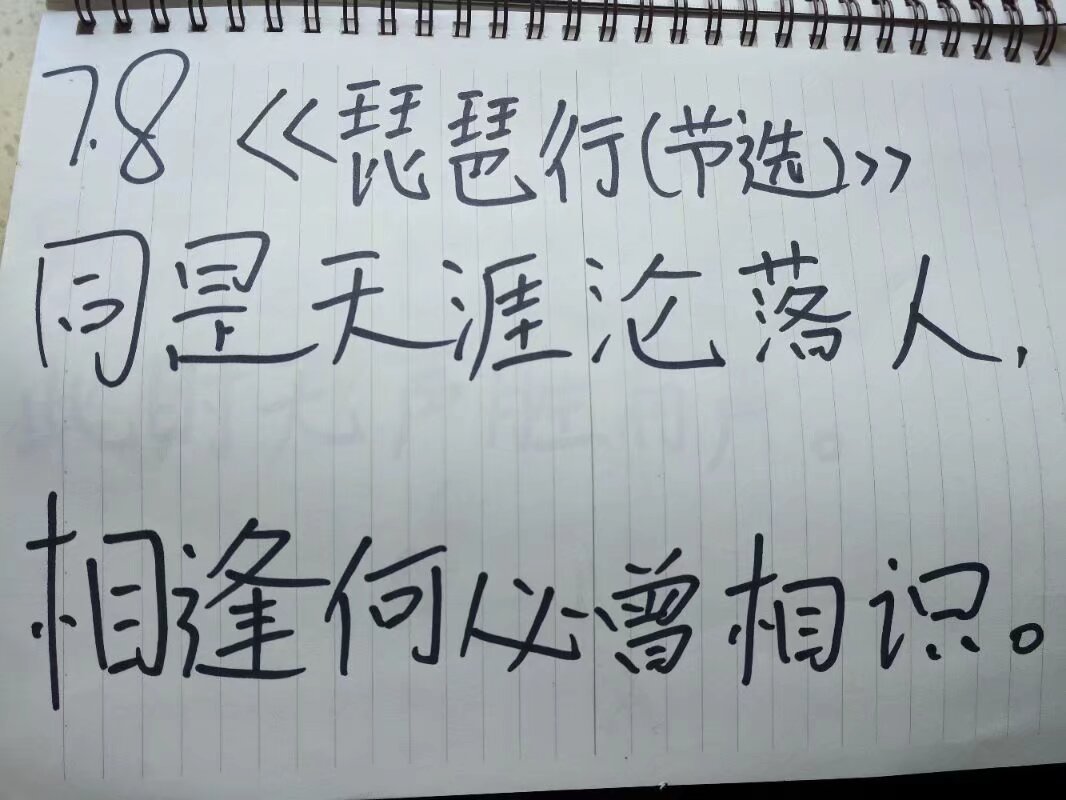 7.8 《琵琶行(节选)》
同是天涯沦落人,
相逢何必曾相识。